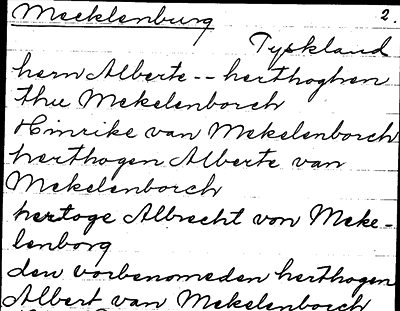 Mecklenburg 2.
Tyskland
hern Alberte -- herthoghen
thu Mekelenborch
Hinrike van Mekelenborch
herthogen Alberte van
Mekelenborch
hertoge Albrecht von Meke-
lenborg
den vorbenomeden herthogen
Albert van Mekelenborch